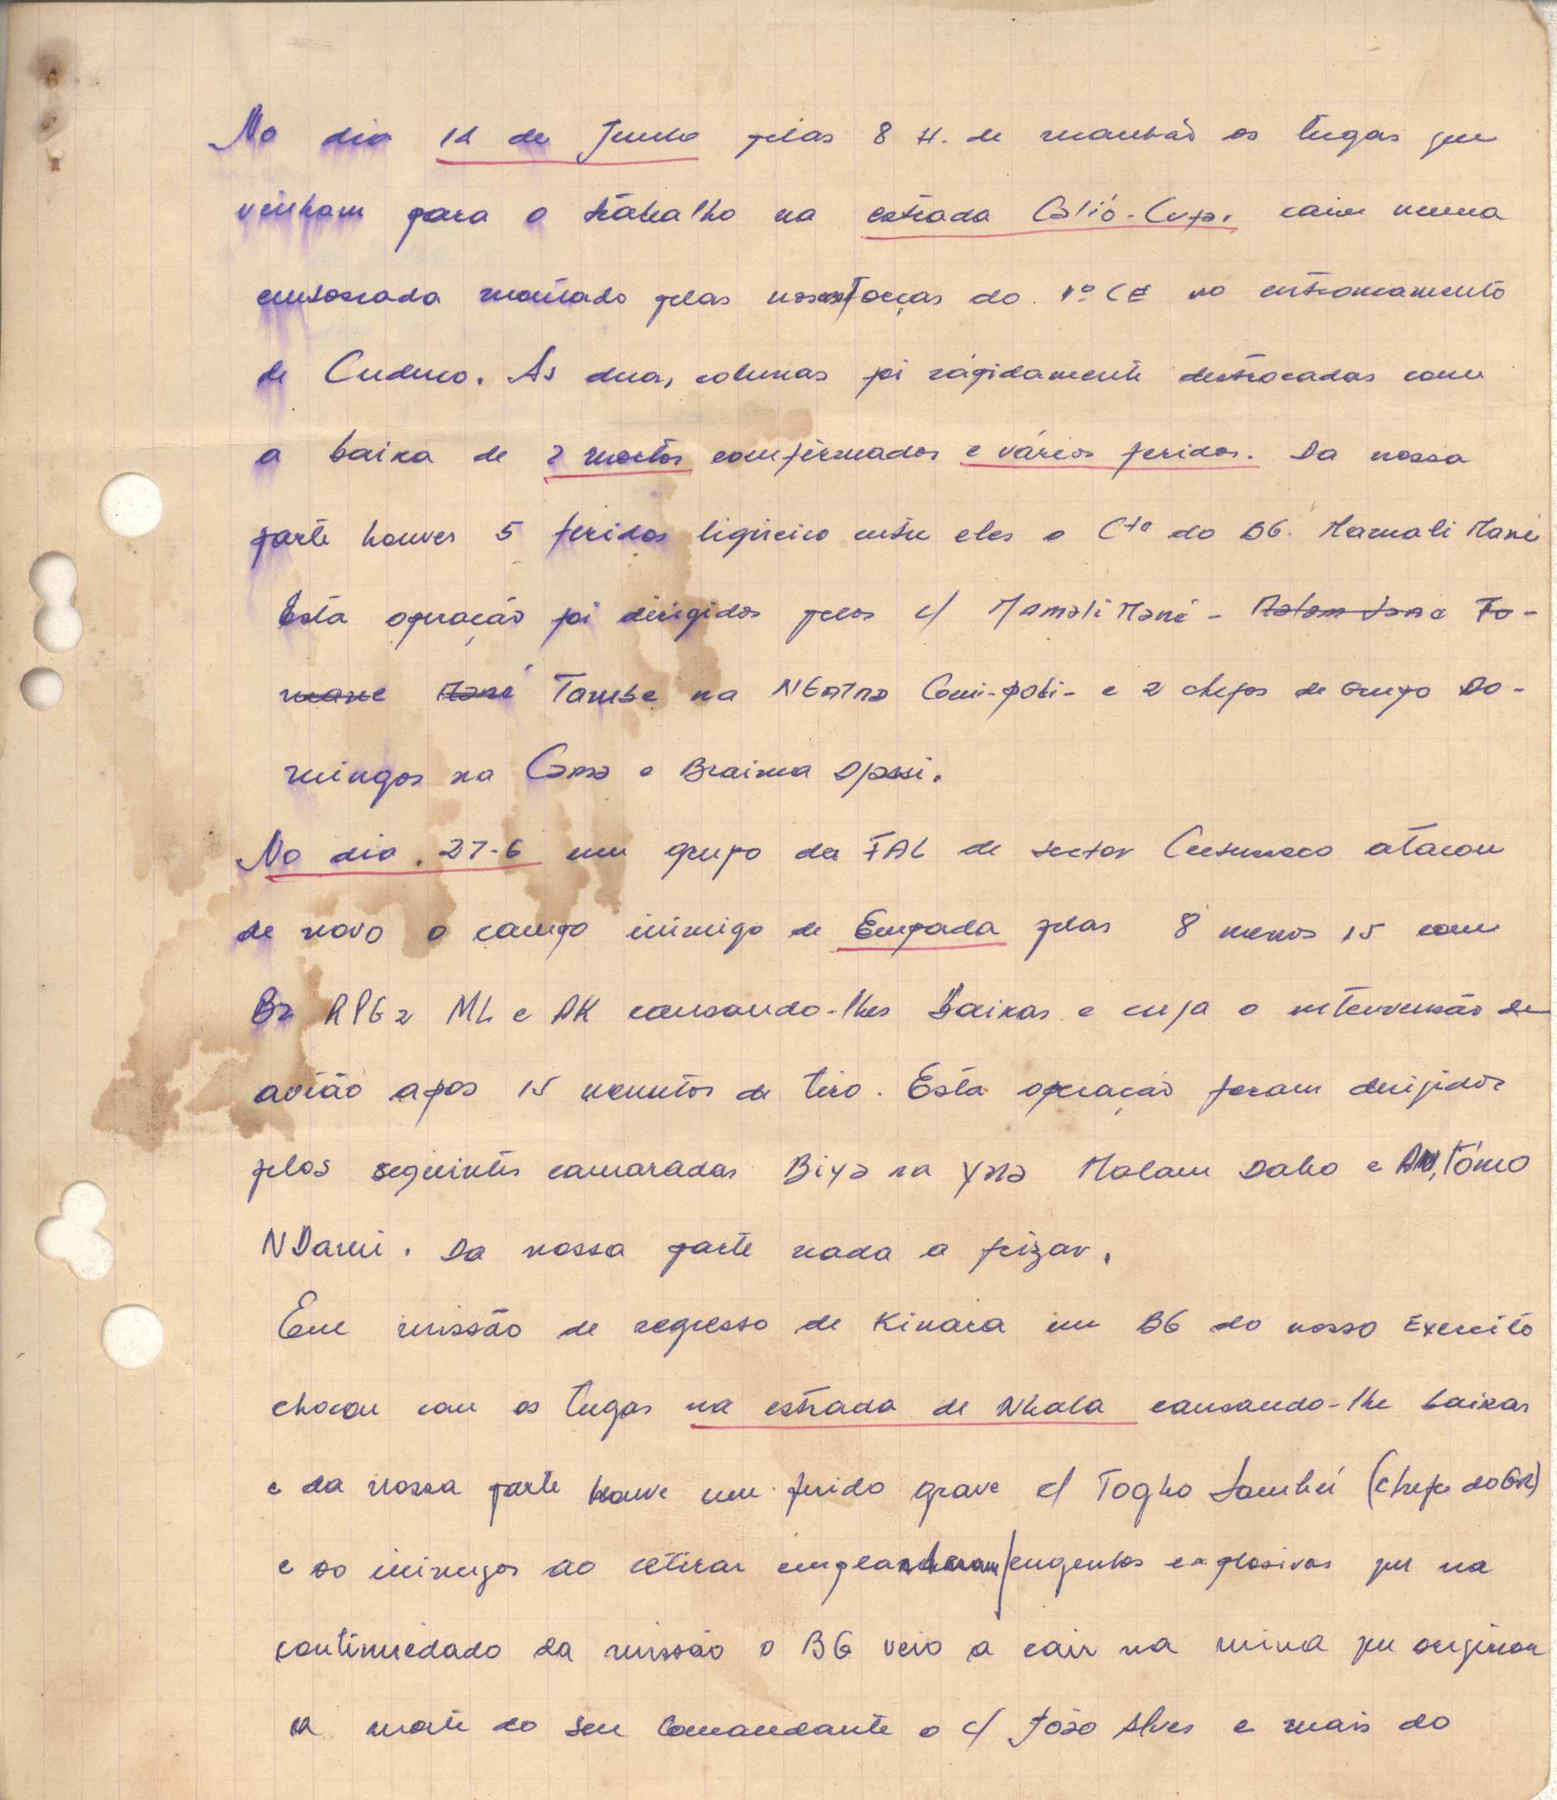 No dia 12 de Junho pelas 8 H. de manhão os tugas que
vinham para o trabalho na estrada Catió-Cufar caiu numa
emboscada montado pelas nossas forças do 1º CE no entroncamento
de Cuduco. As duas colunas foi rágidamente destroçadas com
a baixa de 2 mortos comfirmados e vários feridos. Da nossa
parte houver 5 feridos ligieiro entre eles o Cte do BG. Mamali Mané
Esta operação foi dirigidas pelos c/ Mamali Mané -
Tambe na NGatna Comi-poli- e 2 chefes de Grupo Do-
mingos na Cama e Braima Djassi.
No dia 27-6 um grupo da FAL de sector Cubumeco atacou
de novo o campo inimigo de Empada pelas 8 menos 15 com
B2 RPG2 ML e AK causando-lhes baixas e cuja o intervensão de
avião apos 15 menutos de tiro. Esta operação foram dirijidos
pelos seguintes camaradas Biya na Yna Malam Dabo e António
NDami. Da nossa parte nada a frizar.
Em missão de regresso de Kinara um BG do nosso Exercito
chocou com os tugas na estrada de Nhala causando-lhe baixas
e da nossa parte houve um ferido grave c/ Togho Sambú (Chefe do GR)
e os inimigos ao retirar engenhos explosivos que na
continuidado da missão o BG veio a cair na mina que originou
a morte do seu Comandante o c/ João Alves e mais do